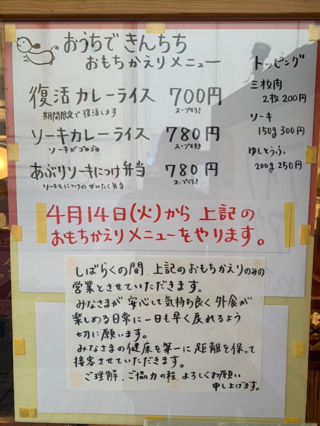 おうちで きんちち
おもちかえりメニュー
復活カレーライス 700円
期間限定で復活します スープ付き
ソーキカレーライス 780円
ソーキがゴロゴロ スープ付き
あぶりソーキにつけ弁当 780円
ソーキとにつけのぜいたく弁当 スープ付き
トッピング
三枚肉
2枚200円
ソーキ
150g 300円
ゆしどうふ
200g 250円
4月14日(火)から 上記の
おもちかえりメニューをやります。
しばらくの間、上記のおもちかえりのみの
営業とさせていただきます。
みなさまが 安心して気持ち良く 外食が
楽しめる日常に一日も早く戻れるよう
切に願います。
みなさまの健康を第一に 距離を保って
接客させていただきます。
ご理解、ご協力の程、よろしくお願い
申し上げます。